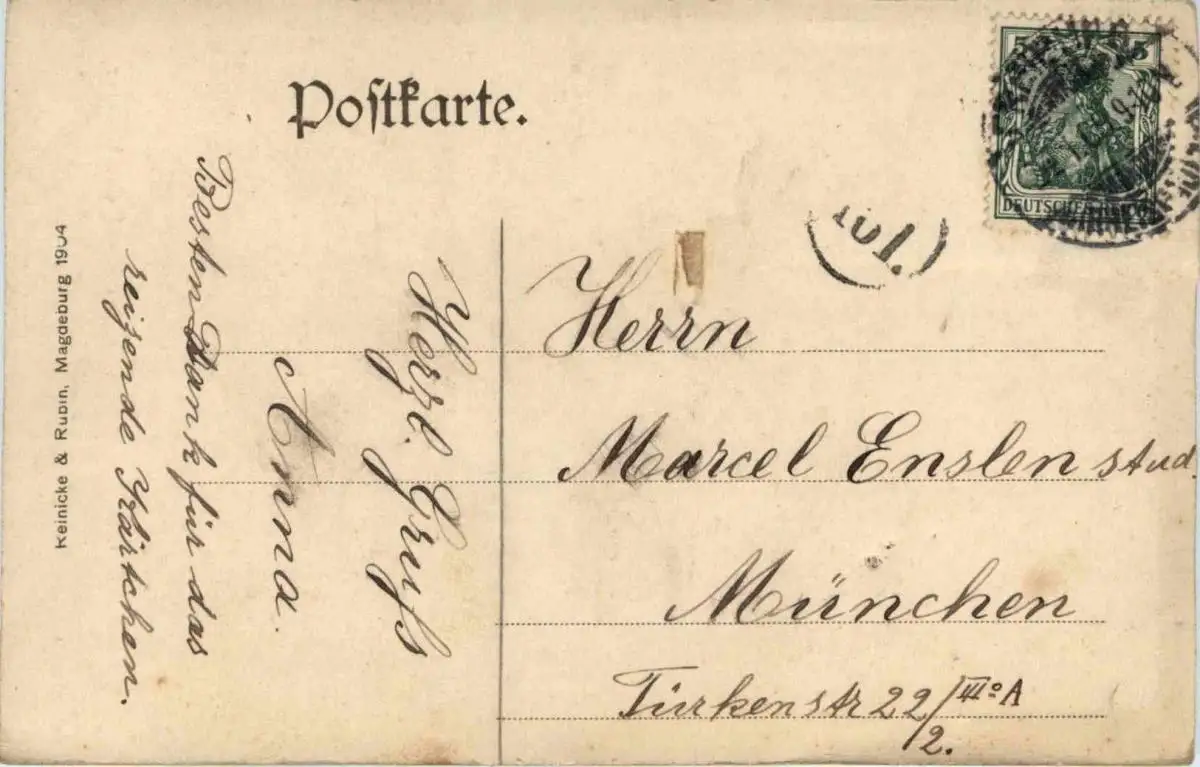 Postkarte.
5 5
DEUTSCHES
101.
Herrn
Marcel Enslen stud
München
Türkenstr 22/IIIº A
2.
Herzl. Gruſs
Anna.
Besten Dank für das
reizende Kärtchen.
Reinicke & Rubin, Magdeburg 1904